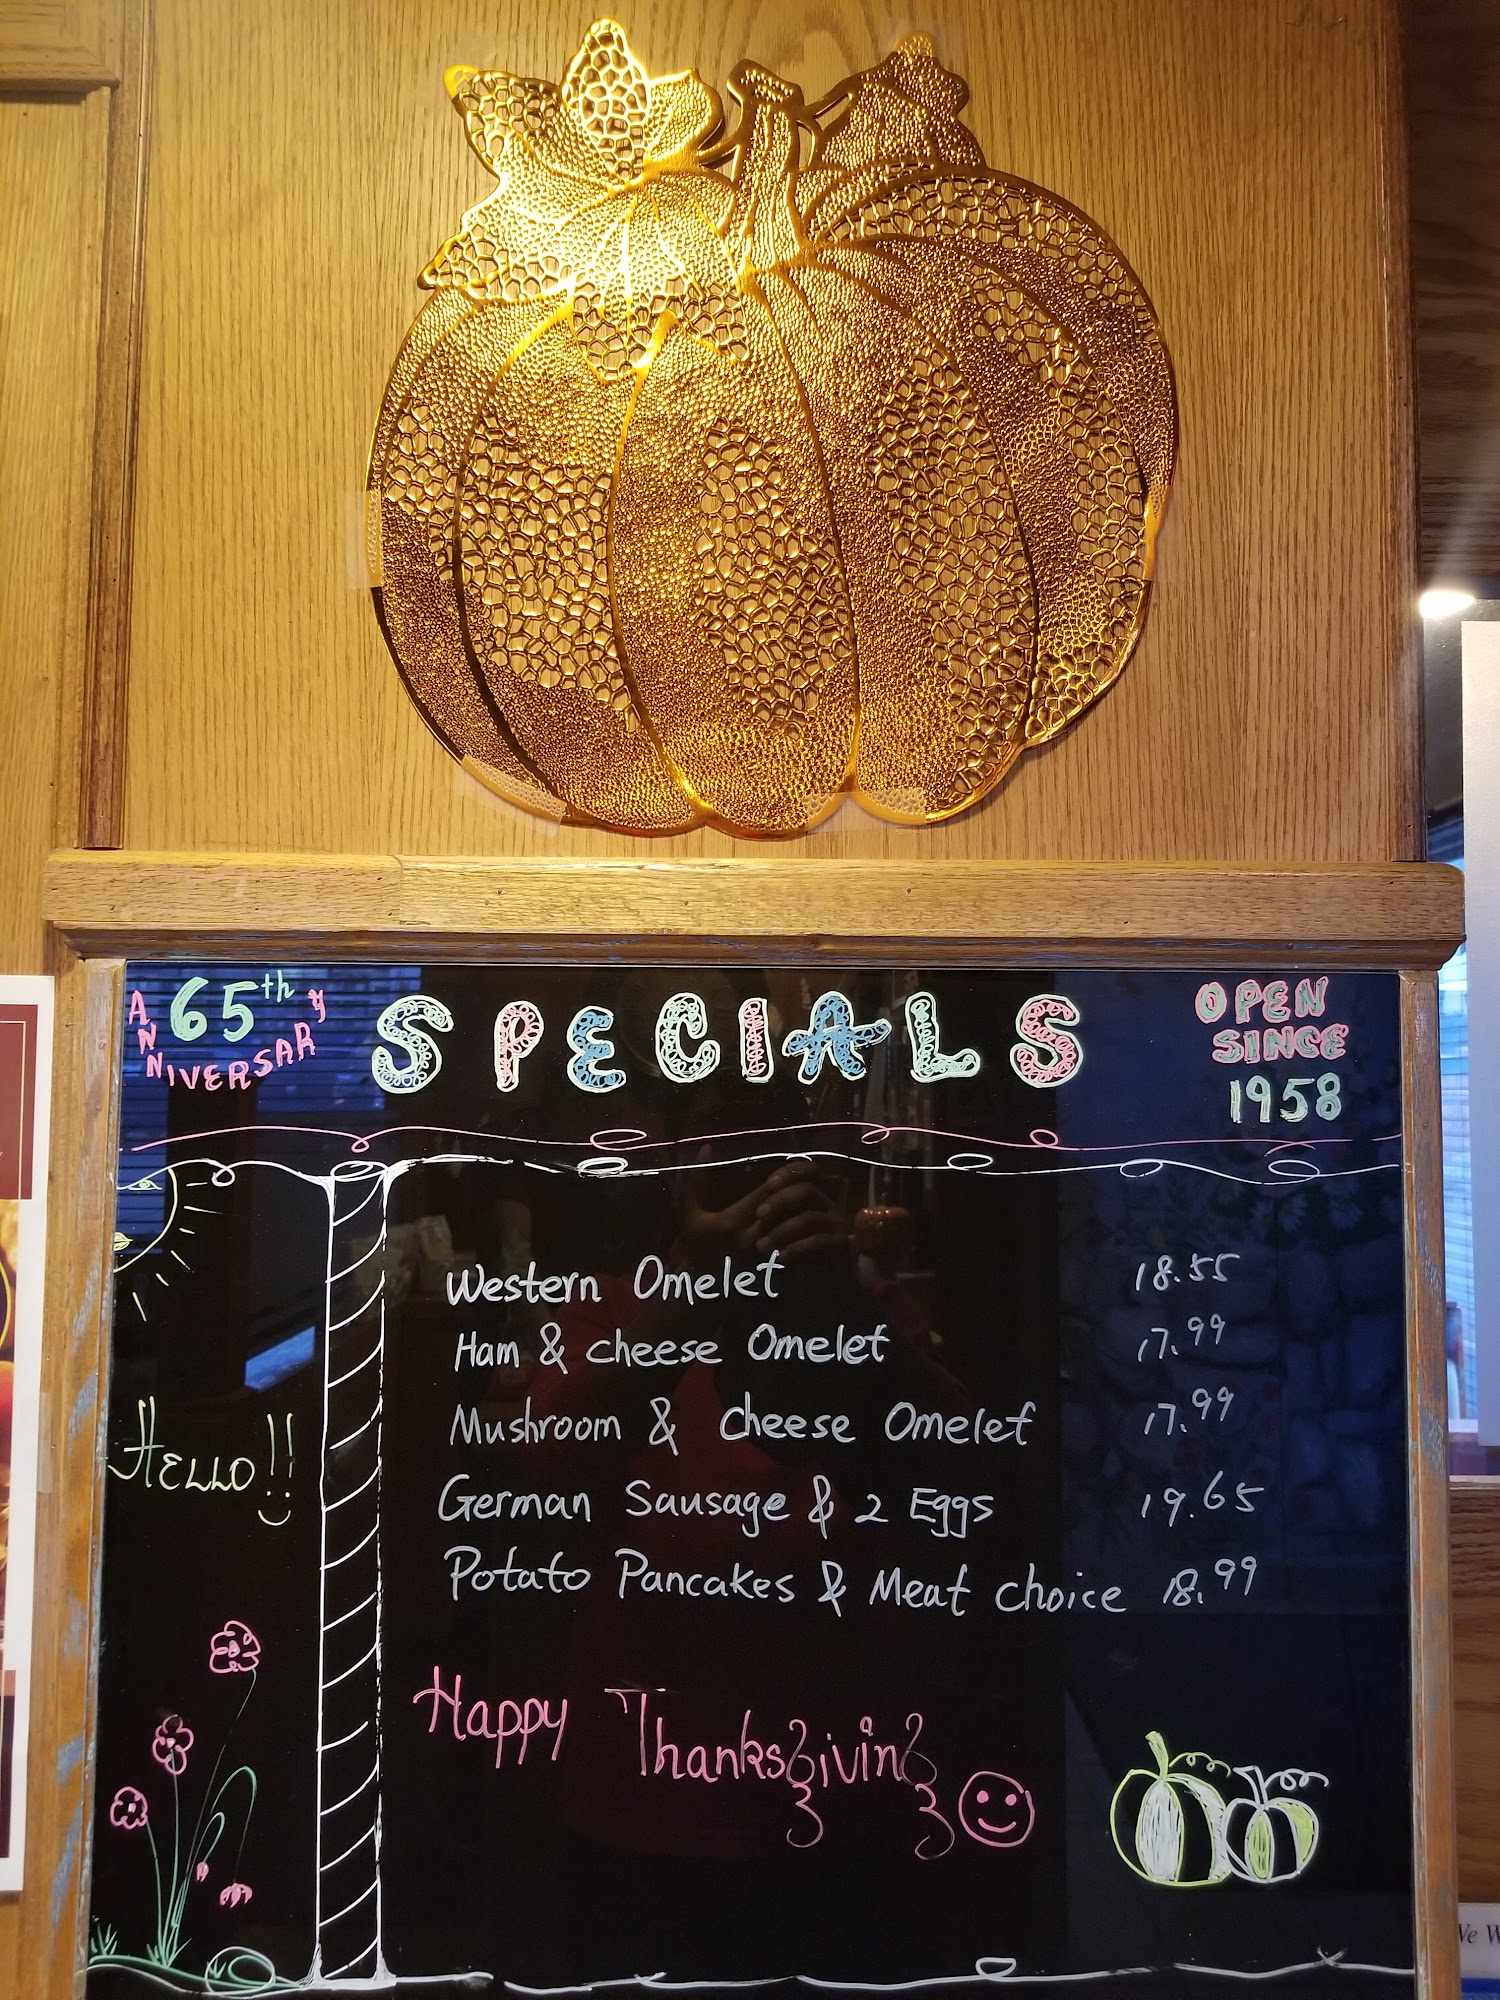 65th
ANNIVERSARY
SPECIALS
OPEN
SINCE
1958
Western Omelet 18.55
Ham & cheese Omelet 17.99
Mushroom & cheese Omelet 17.99
German Sausage & 2 Eggs 19.65
Potato Pancakes & Meat choice 18.99
HELLO!!
Happy Thanksgiving
We